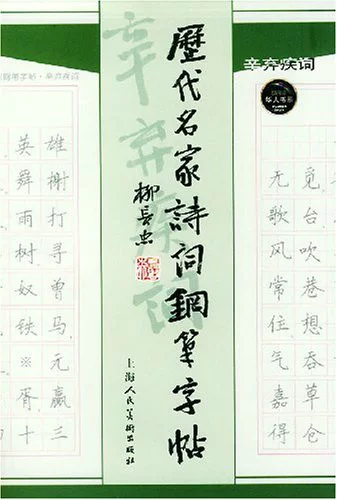 歷代名家詩詞鋼筆字帖
辛弃疾词
柳長忠
上海人民美術出版社
辛弃疾词
钢笔字帖·辛弃疾词
英雄
舞榭
雨打
树寻
奴曾
铁马
※元
胥赢
十三
无觅
歌台
风吹
常巷
住想
气吞
嘉草
得仓